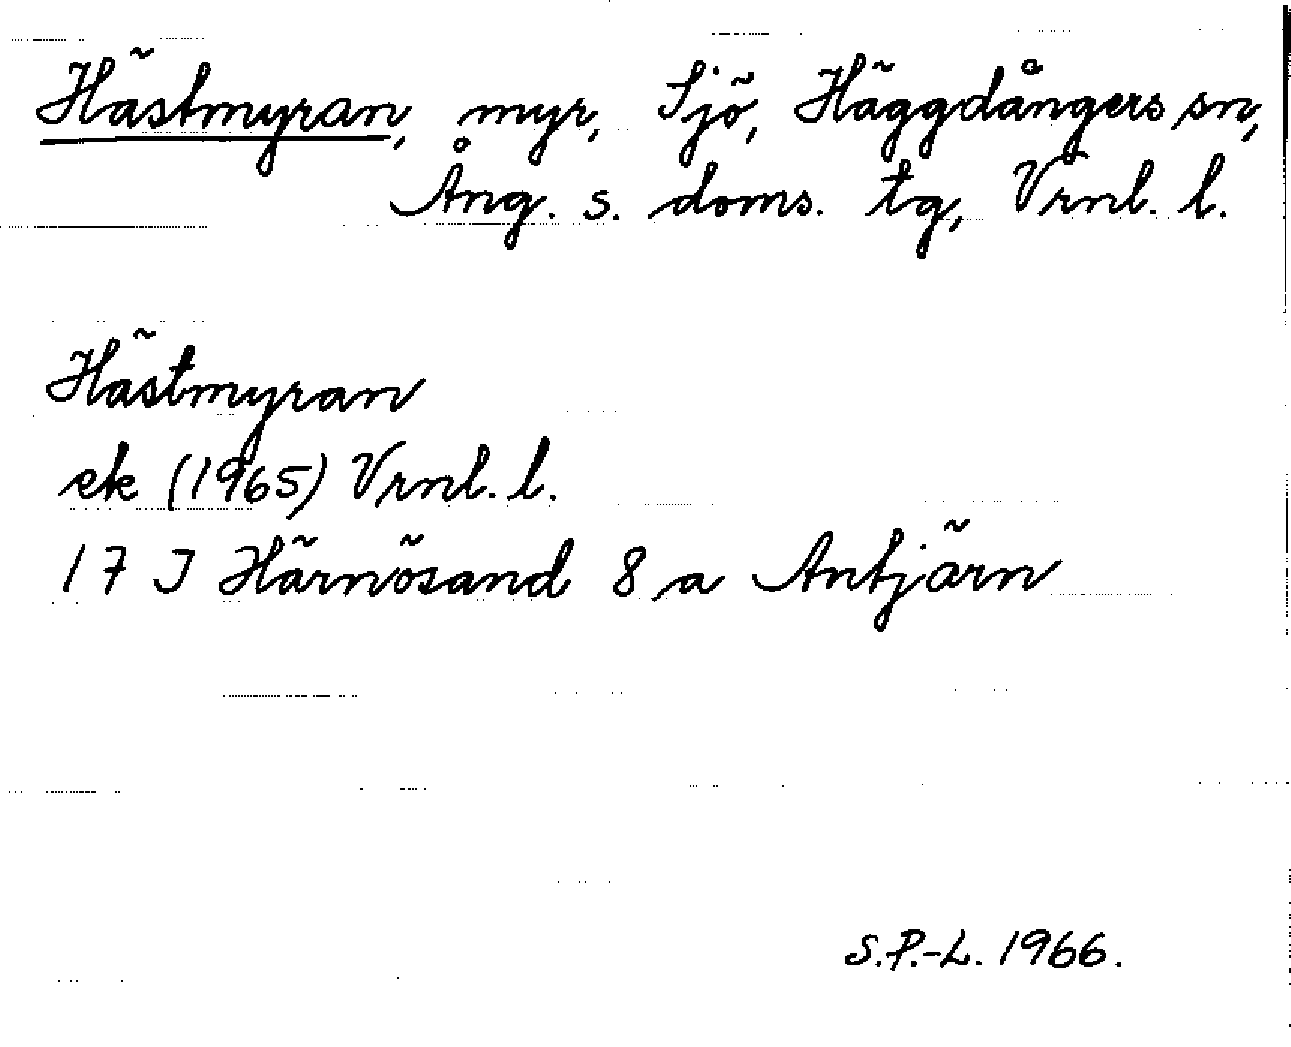 Hästmyran, myr, Sjö, Häggdångers sn,
Ång. s. doms. tg, Vrnl. l.
Hästmyran
ek (1965) Vrnl. l.
17 J Härnösand 8 a Antjärn
S.P.-L. 1966.